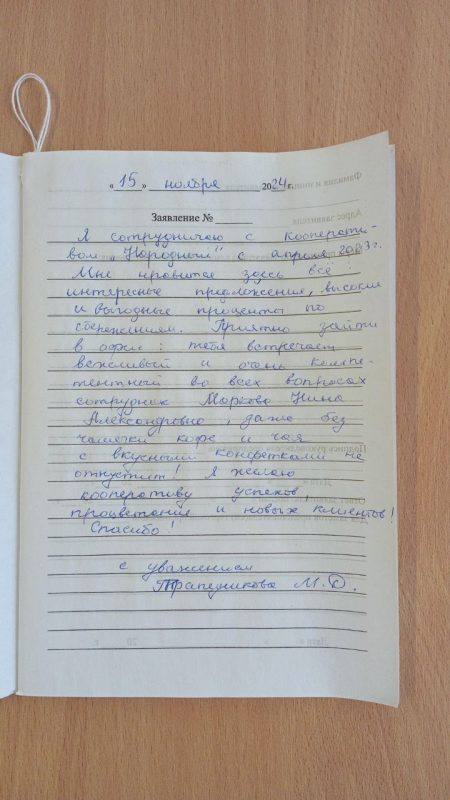 « 15 » ноября 2024 г.
Заявление №
Я сотрудничаю с Кооперати-
вом „Народный" с апреля 2023 г.
Мне нравится здесь всё:
интересные предложения, высокие
и выгодные проценты по
сбережением. Приятно зайти
в офис: тебя встречает
вежливый и очень компе-
тентный во всех вопросах
сотрудник Маркова Нина
Александровна, даже без
чашечки кофе и чая
с вкусными конфетками не
отпустит! Я желаю
кооперативу успехов,
процветания и новых клиентов!
Спасибо!
с уважением
Трапезникова М.Д.